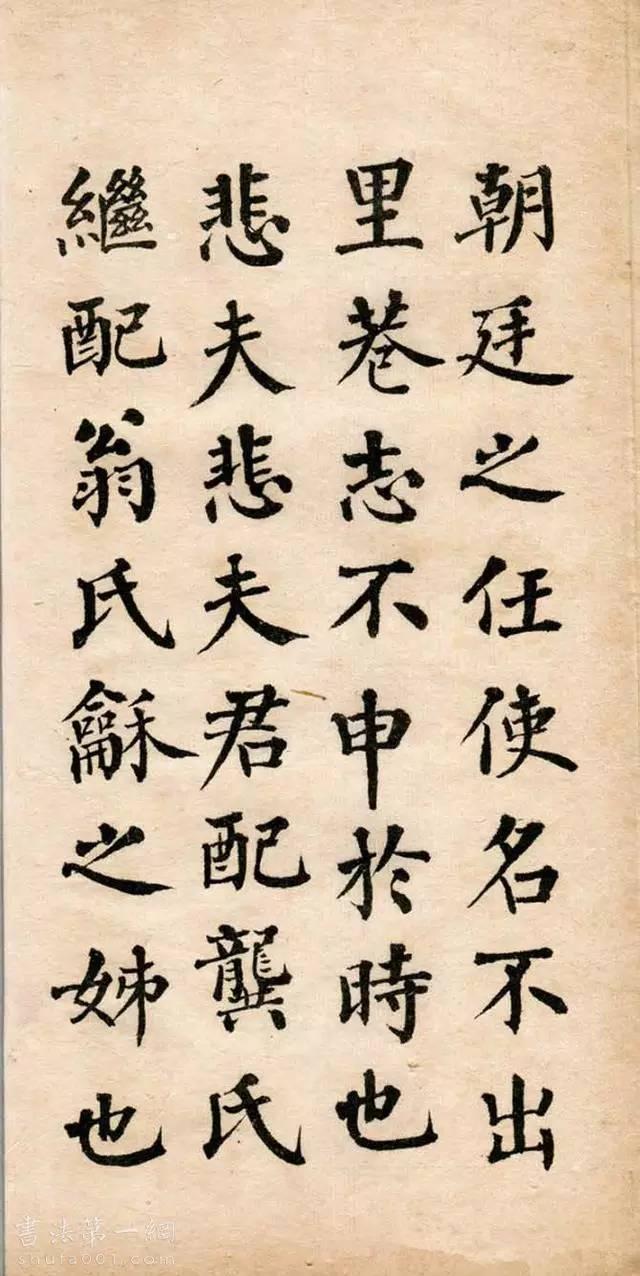 朝廷之任使名不出
里巷志不申於時也
悲夫悲夫君配龔氏
繼配翁氏龢之姊也
書法第一網
shufa001.com